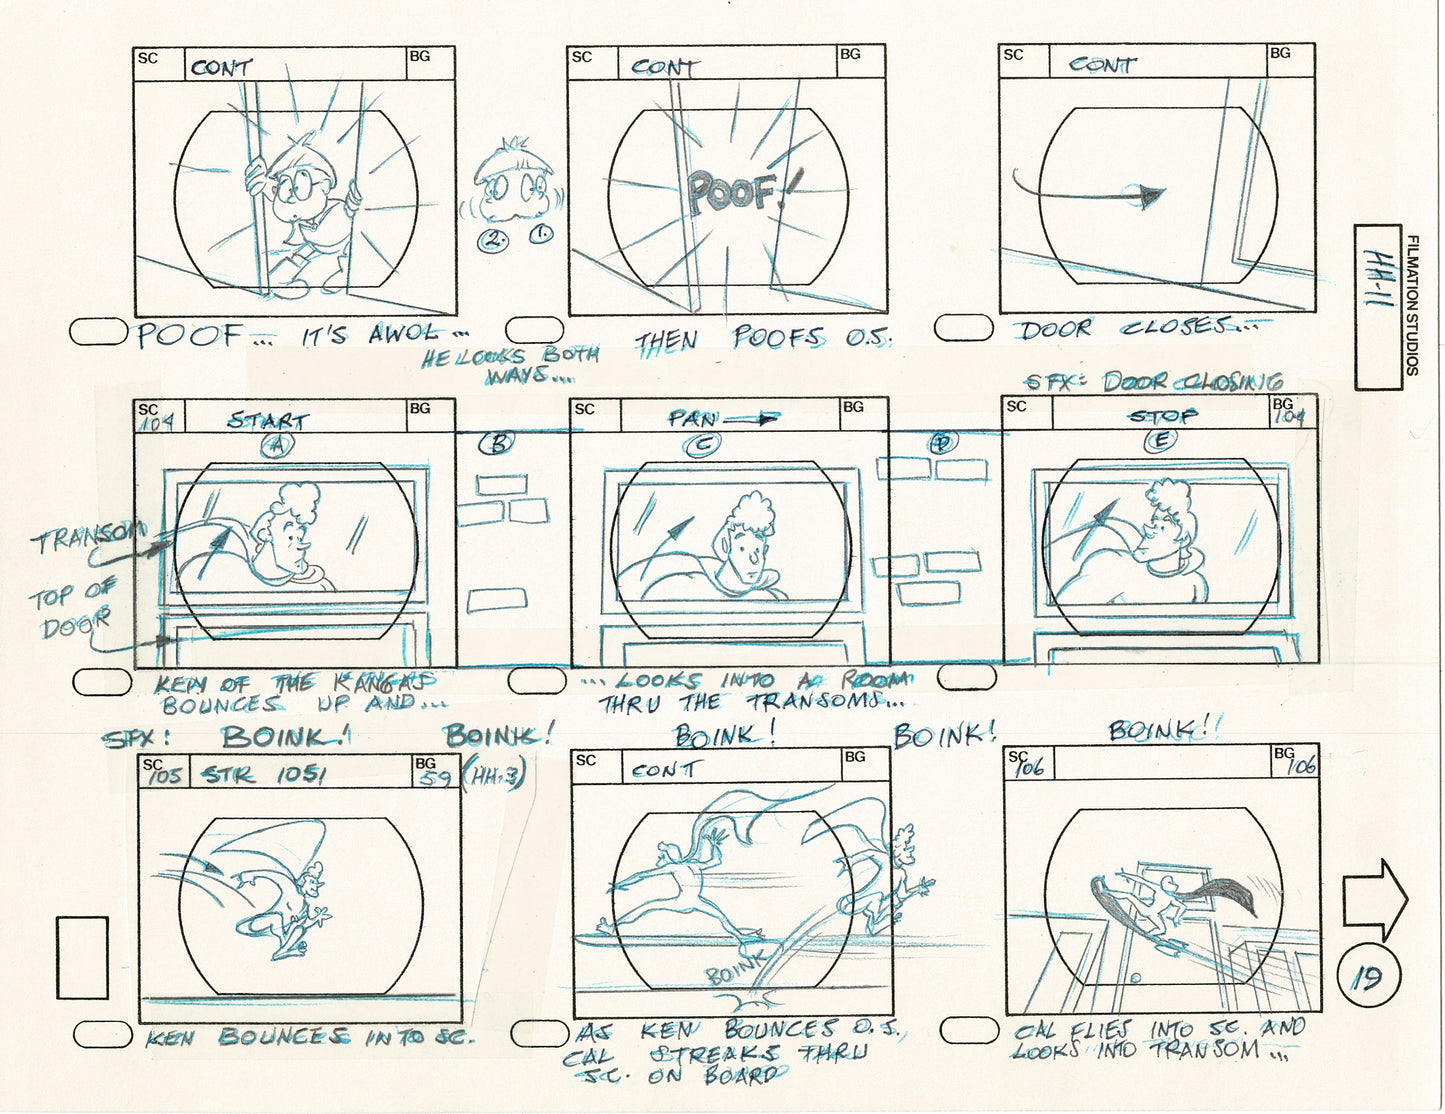 SC CONT BG
SC CONT BG
SC CONT BG
POOF!
2. 1.
FILMATION STUDIOS
HH-11
POOF... IT'S AWOL...
HE LOOKS BOTH
WAYS...
THEN POOFS O.S.
DOOR CLOSES...
SFX: DOOR CLOSING
SC 104 START BG
SC PAN BG
SC STOP BG 104
A B C D E
TRANSOM
TOP OF
DOOR
KEN OF THE KANGAS
BOUNCES UP AND...
... LOOKS INTO A ROOM
THRU THE TRANSOMS...
SFX: BOINK! BOINK! BOINK! BOINK! BOINK!!
SC 105 STR 1051 BG 59 (HH-3)
SC CONT BG
SC 106 BG 106
BOINK
19
KEN BOUNCES INTO SC.
AS KEN BOUNCES O.S.,
CAL STREAKS THRU
SC. ON BOARD
CAL FLIES INTO SC. AND
LOOKS INTO TRANSOM...